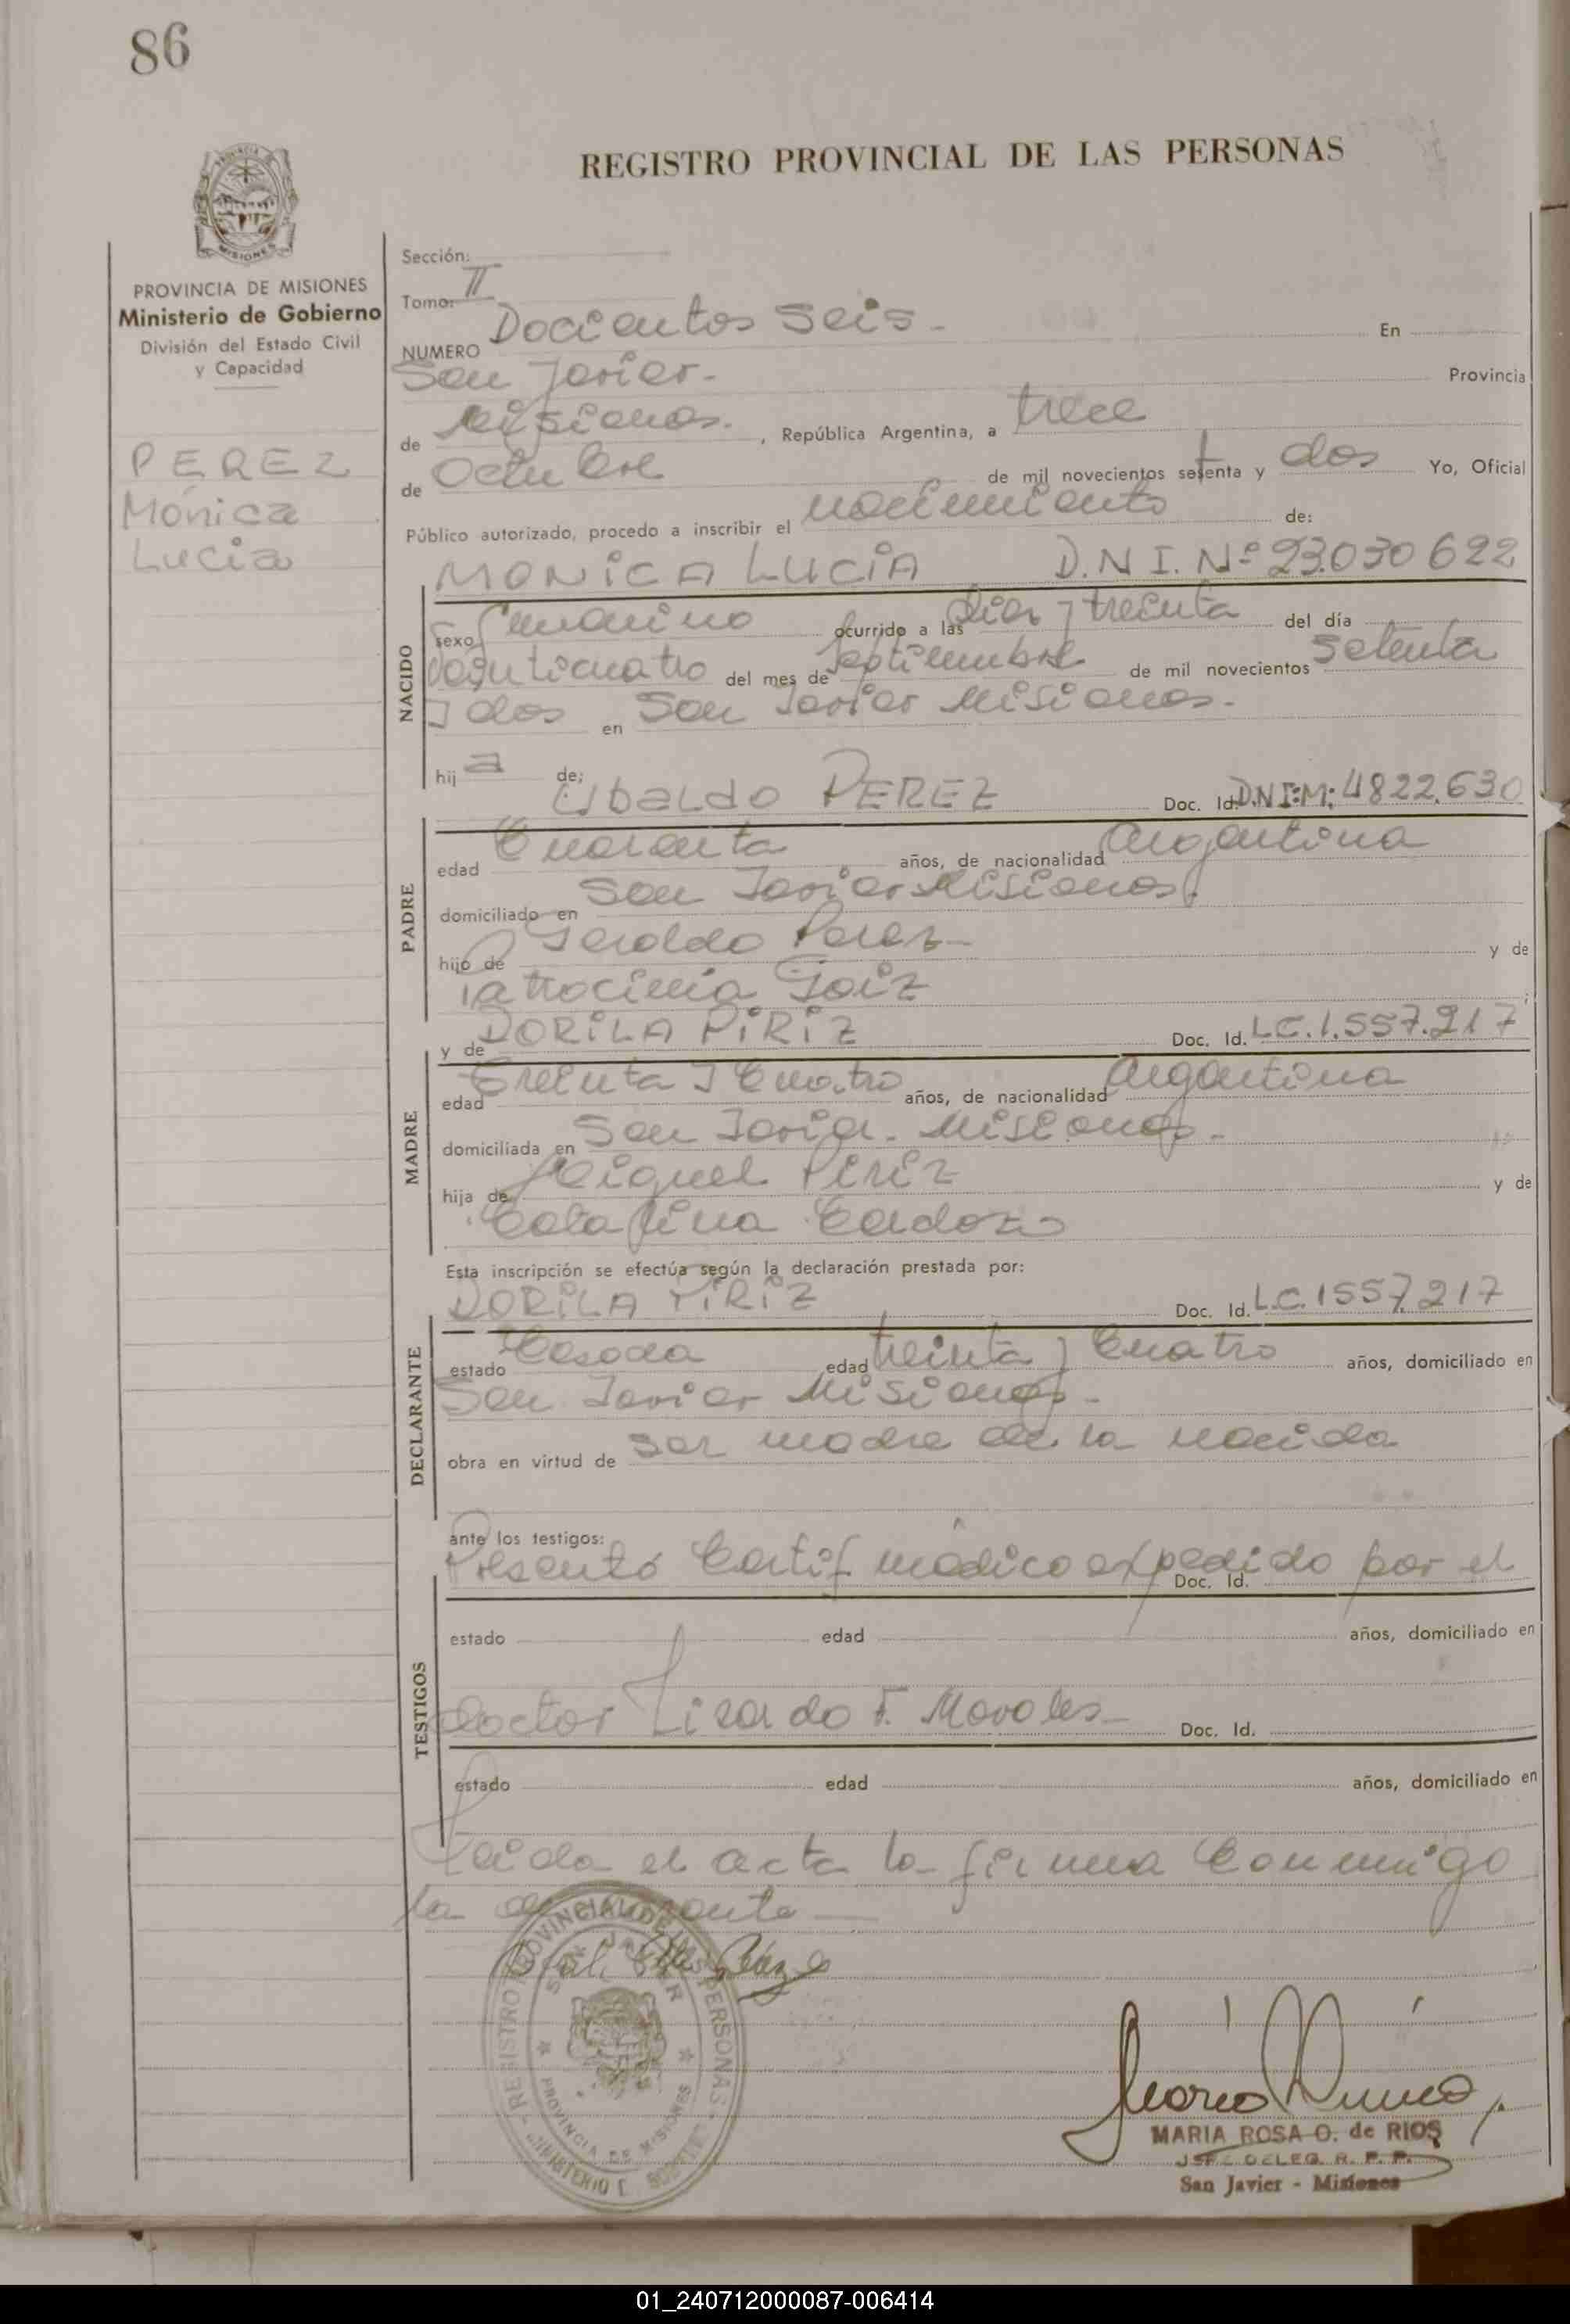 86
REGISTRO PROVINCIAL DE LAS PERSONAS
MISIONES
PROVINCIA DE MISIONES
Ministerio de Gobierno
División del Estado Civil
y Capacidad
PEREZ
Mónica
Lucia
Sección:
Tomo: II
NUMERO Docientos seis - En
San Javier - Provincia
de Misiones. , República Argentina, a trece
de Octubre de mil novecientos setenta y dos Yo, Oficial
Público autorizado, procedo a inscribir el nacimiento de:
MONICA LUCIA D.N.I. Nº 23.030622
NACIDO
sexo Femenino ocurrido a las diez y treinta del día
veinticuatro del mes de septiembre de mil novecientos setenta
y dos en San Javier Misiones.
hija de: Ubaldo PEREZ Doc. Id. D.N.I:M: 4822.630
PADRE
edad Cuarenta años, de nacionalidad Argentina
domiciliado en San Javier Misiones.
hijo de Geraldo Perez - y de
Patrocinia
MADRE
y de DORILA PIRIZ Doc. Id. L.C.1.557.217
edad Treinta y Cuatro años, de nacionalidad Argentina
domiciliada en San Javier. Misiones -
hija de Miguel Piriz y de
Catalina Cardozo
Esta inscripción se efectúa según la declaración prestada por:
DORILA PIRIZ Doc. Id. L.C.1557.217
DECLARANTE
estado Casada edad treinta y Cuatro años, domiciliado en
San Javier Misiones -
obra en virtud de ser madre de la nacida
ante los testigos:
Presentó Certif médico expedido por el
Doc. Id.
TESTIGOS
estado edad años, domiciliado en
doctor Lizardo F. Morales - Doc. Id.
estado edad años, domiciliado en
Leida el acta la firma Conmigo
la
REGISTRO PROVINCIAL DE LAS PERSONAS
SAN JAVIER
PROVINCIA DE MISIONES
MARIA ROSA O. de RIOS
JEFE DELEG. R. P. P.
San Javier - Misiones
01_240712000087-006414